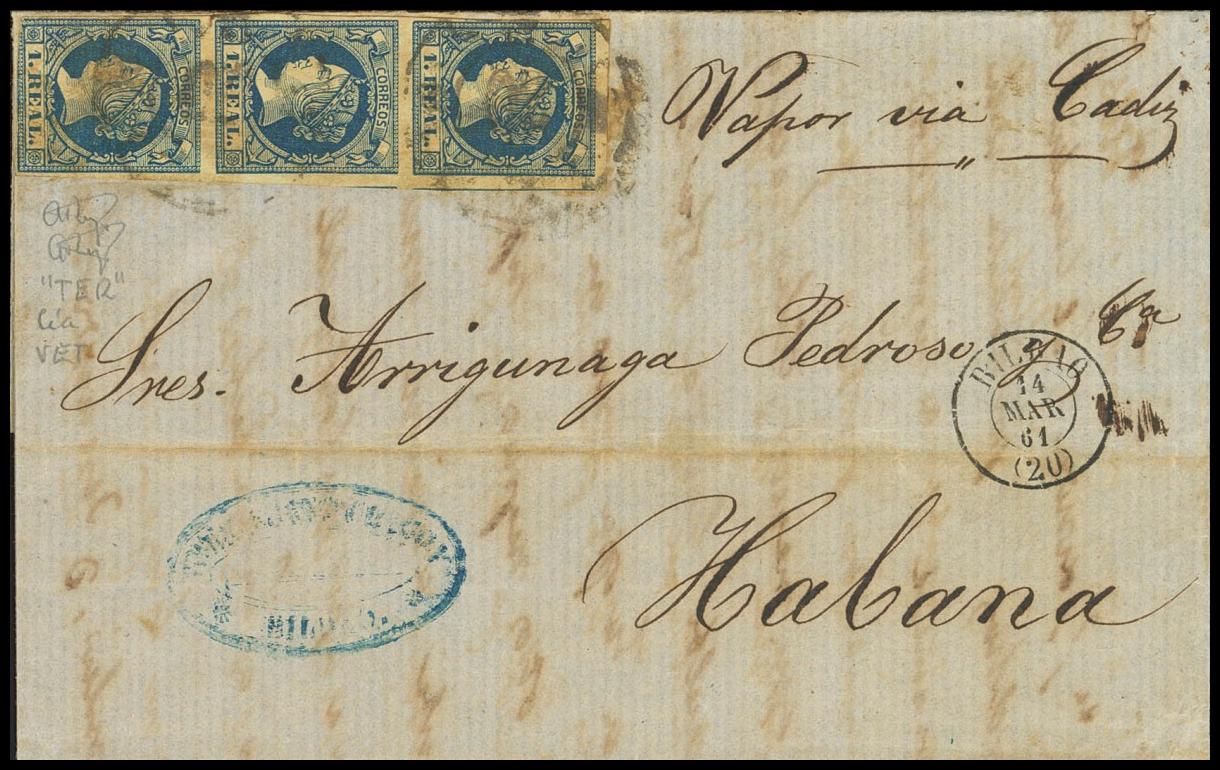 1. REAL. CORREOS
1. REAL. CORREOS
1. REAL. CORREOS
Vapor via Cadiz
"TER"
Cía
VET
Sres. Arrigunaga Pedroso y Cª
BILBAO
14
MAR
61
(20)
Habana
BILBAO.